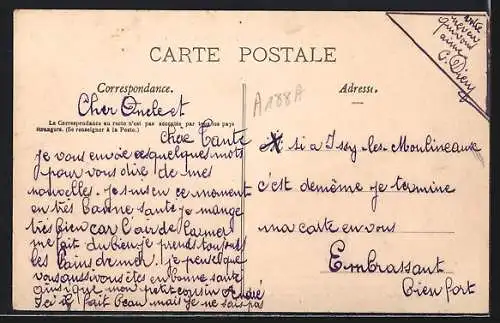 CARTE POSTALE
Correspondance.
Adresse.
Cher Oncle et
La Correspondance au recto n'est pas acceptée par tous les pays
étrangers. (Se renseigner à la Poste.)
Chère Tante
je vous envoie ces quelques mots
pour vous dire de mes
nouvelles. Je suis en ce moment
en très bonne santé je mange
très bien car l'air de la mer
me fait du bien je prends toujours
les bains de mer. je pense que
vous aussi vous êtes en bonne santé
ainsi que mon petit cousin André
Ici il fait beau mais je ne sais pas
A188A
si a Issy-les-Moulineaux
c'est de même je termine
ma carte en vous
Embrassant
bien fort
votre
neveu
qui vous
aime